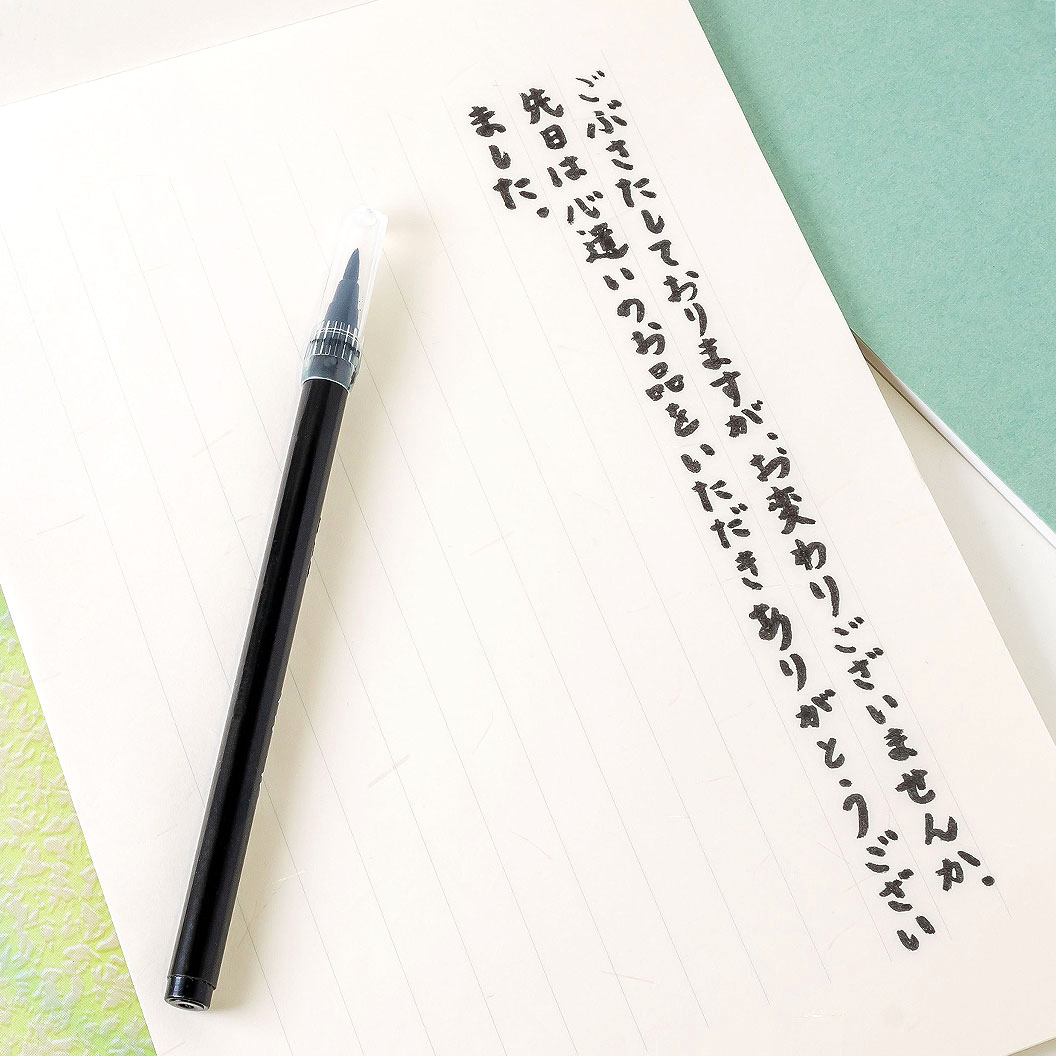 ごぶさたしておりますが、お変わりございませんか。
先日は心遣いのお品をいただきありがとうござい
ました。